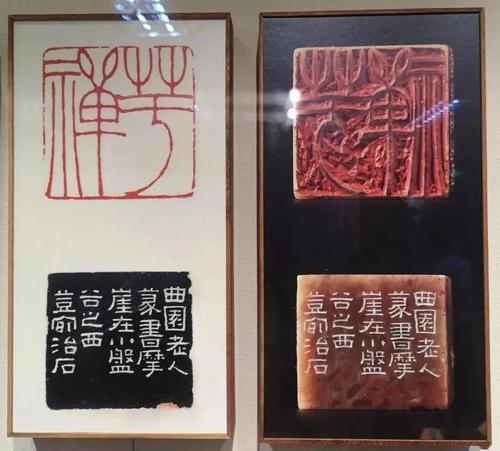 芋禪
曲園老人
篆書摩
崖在小盤
谷之西
治石
芋禪
曲園老人
篆書摩
崖在小盤
谷之西
治石